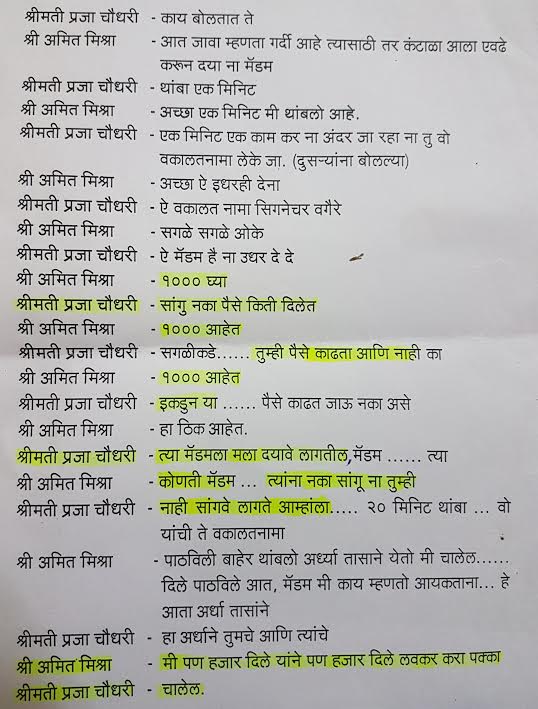 श्रीमती प्रजा चौधरी - काय बोलतात ते
श्री अमित मिश्रा - आत जावा म्हणता गर्दी आहे त्यासाठी तर कंटाळा आला एवढे
करून दया ना मॅडम
श्रीमती प्रजा चौधरी - थांबा एक मिनिट
श्री अमित मिश्रा - अच्छा एक मिनिट मी थांबलो आहे.
श्रीमती प्रजा चौधरी - एक मिनिट एक काम कर ना अंदर जा रहा ना तु वो
वकालतनामा लेके जा. (दुसऱ्यांना बोलल्या)
श्री अमित मिश्रा - अच्छा ऐ इधरही देना
श्रीमती प्रजा चौधरी - ऐ वकालत नामा सिगनेचर वगैरे
श्री अमित मिश्रा - सगळे सगळे ओके
श्रीमती प्रजा चौधरी - ऐ मॅडम है ना उधर दे दे
श्री अमित मिश्रा - १००० घ्या
श्रीमती प्रजा चौधरी - सांगु नका पैसे किती दिलेत
श्री अमित मिश्रा - १००० आहेत
श्रीमती प्रजा चौधरी - सगळीकडे...... तुम्ही पैसे काढता आणि नाही का
श्री अमित मिश्रा - १००० आहेत
श्रीमती प्रजा चौधरी - इकडुन या ...... पैसे काढत जाऊ नका असे
श्री अमित मिश्रा - हा ठिक आहेत.
श्रीमती प्रजा चौधरी - त्या मॅडमला मला दयावे लागतील, मॅडम ...... त्या
श्री अमित मिश्रा - कोणती मॅडम ... त्यांना नका सांगू ना तुम्ही
श्रीमती प्रजा चौधरी - नाही सांगवे लागते आम्हांला..... २० मिनिट थांबा ... वो
यांची ते वकालतनामा
श्री अमित मिश्रा - पाठविली बाहेर थांबलो अर्ध्या तासाने येतो मी चालेल......
दिले पाठविले आत, मॅडम मी काय म्हणतो आयकताना... हे
आता अर्धा तासांने
श्रीमती प्रजा चौधरी - हा अर्धाने तुमचे आणि त्यांचे
श्री अमित मिश्रा - मी पण हजार दिले यांने पण हजार दिले लवकर करा पक्का
श्रीमती प्रजा चौधरी - चालेल.